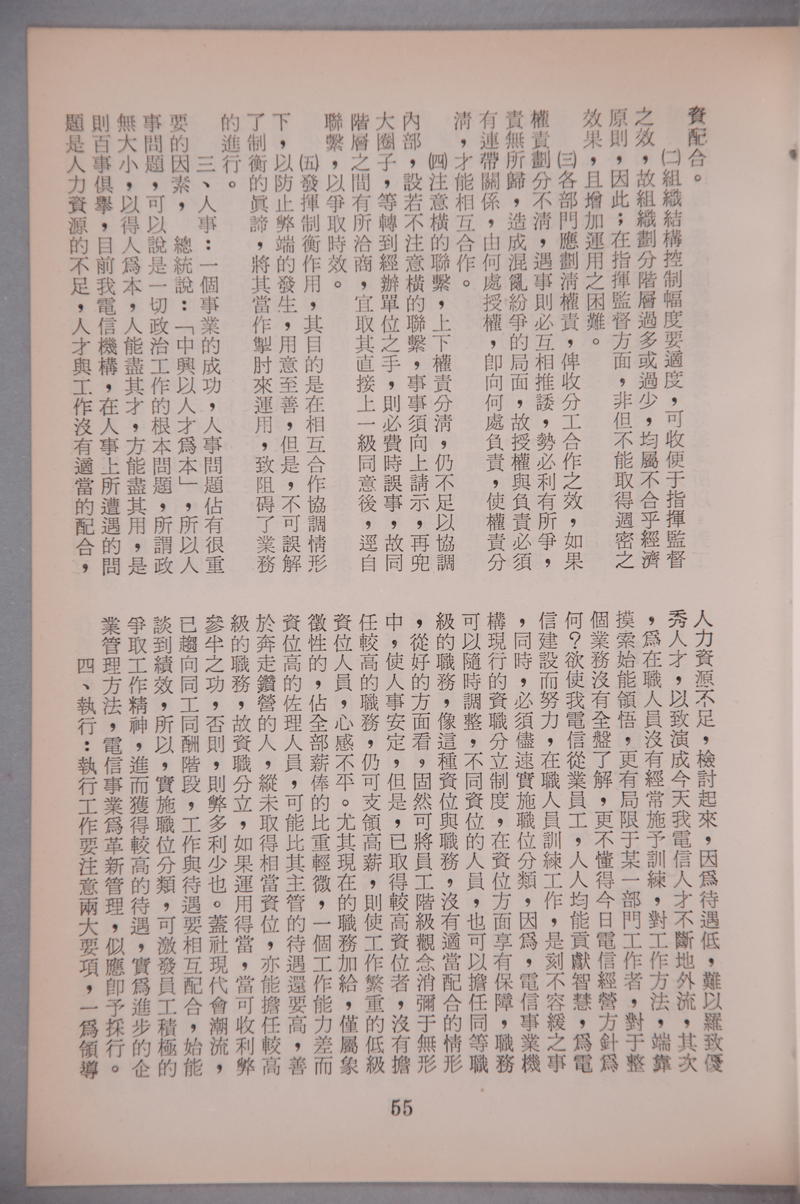 資配合。
㈡組織結構控制幅度要適度，可收便于指揮監督
之效，故組織劃分階層過多或過少，均屬不合乎經濟
原則，因此；在指揮監督方面，非但不能取得週密之
效果，且增加運用之困難。
㈢各部門應劃清權責，俾收分工合作之效，如果
權責劃分不清，遇事則必互相推諉，勢必利有所爭，
責無所歸，造成混亂紛爭的局面，故授權與負責必須
有連帶關係，由何處授權，卽向何處負責，使權責分
淸，才能相互合作。
㈣注意橫的聯繫，上下權責分淸，仍不足以協調
內部，設若不注意橫的聯繫，事事須向上請示，再兜
大圈子，等轉到經辦單位之手，則必費時誤事，故同
階層之間有所洽商，宜取其直接上一級同意後，逕自
聯繫，以爭取時效。
㈤發揮制衡作用，其目的是在相互合作協調情形
下，以防止弊端的發生，用意至善，但是，不可誤解
了制衡的眞諦，將其當作掣肘來運用，致阻碍了業務
的進行。
三、人事：一個事業的成功，人事問題佔有很重
要的因素，　總統說：「中興以人才爲本」，所以人
事問題，可以說是一切政治工作的根本問題，所謂政
無大小，以得人爲本，人能盡其才，方能盡其用，是
則百事俱擧，目前我電信機構，在人事上所遭遇的問
題是人力資源的不足，人才與工作沒有適當的配合，
人力資源不足，檢討起來，因爲待遇低，難以羅致優
秀人才，以致演成今天我電信人才不斷地外流，其次
，爲在職人員沒有經常施予訓練，對工作方法，端靠
摸索始能領悟，更有局限于某一部門工作者，對于整
個業務沒有全盤了解，更不懂得今日電信經營方針爲
何？欲使我電信從業員工，人人均能貢獻智慧，爲電
信建設而努力，在職人員訓練工作，是刻不容緩之事
，同時，必須儘速實施職位分類，因爲，電信事業機
構現行的資職分立制度，在資位方面享有保障，職務
可以隨時調整，不同資位的人員，也可以擔任同等職
級的職務，像這種資位與職務，沒有適當配合的情形
，從好的方面看，固然可將員工階級觀念消彌于無形
中，使人事安定，但是，已取得較高資位者，沒有擔
任較高的職務，仍可支領高薪，則使工作繁重的低級
資位人員，心感不平。尤其現在的職務加給，僅屬象
徵性的，佔全部薪俸的比重輕微，一個工作能力差而
資位高的佐理人員，可能比其主管的待遇還要高，善
於奔走鑽營的人，縱未取得相當資位，亦能擔任較高
級的職務，故資職分立，如果運用得當，當可收利弊
參半之功，否則，則弊多利少也。蓋社現代會潮流，
已趨向同工同酬階段，工作與待遇要相互配合，始能
談到績效，所以，實施職位分類，可激發員工積極的
爭取工作精神，進而獲得較高的待遇，實爲進步的企
業管理方法，電信事業爲革新管理，似應卽予採行。
四、執行：執行工作要注意兩大要項，一爲領導
55